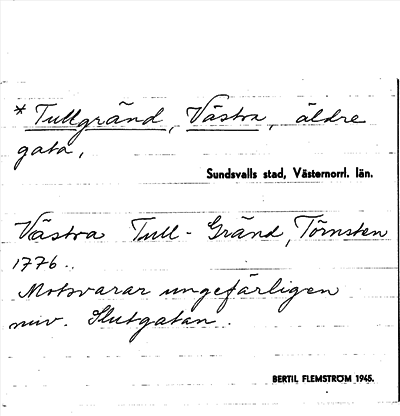 * Tullgränd, Västra, äldre
gata,
Sundsvalls stad, Västernorrl. län.
Västra Tull-Gränd, Törnsten
1776.
Motsvarar ungefärligen
nuv. Slutgatan.
BERTIL FLEMSTRÖM 1945.